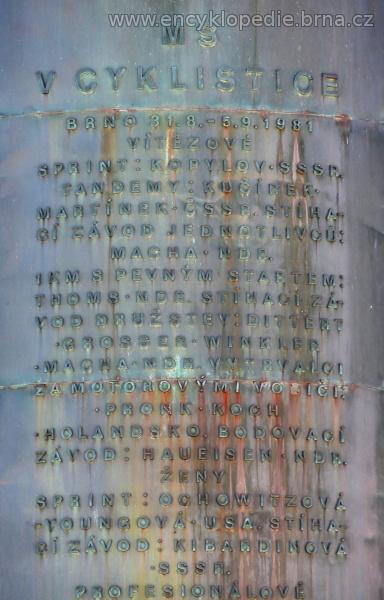 www.encyklopedie.brna.cz
MS
V CYKLISTICE
BRNO 31.8.-5.9.1981
VÍTĚZOVÉ
SPRINT: KOPYLOV·SSSR.
TANDEMY: KUČÍREK·
MARTÍNEK·ČSSR. STÍHA-
CÍ ZÁVOD JEDNOTLIVCŮ:
MACHA·NDR.
1KM S PEVNÝM STARTEM:
THOMS·NDR. STÍHACÍ ZÁ-
VOD DRUŽSTEV: DITTERT
·GROSSER·WINKLER
·MACHA·NDR. VYTRVALCI
ZA MOTOROVÝMI VODIČI:
·PRONK·KOCH
·HOLANDSKO. BODOVACÍ
ZÁVOD: HAUEISEN·NDR.
ŽENY
SPRINT: OCHOWITZOVÁ
·YOUNGOVÁ·USA. STÍHA-
CÍ ZÁVOD: KIBARDINOVÁ
·SSSR.
PROFESIONÁLOVÉ